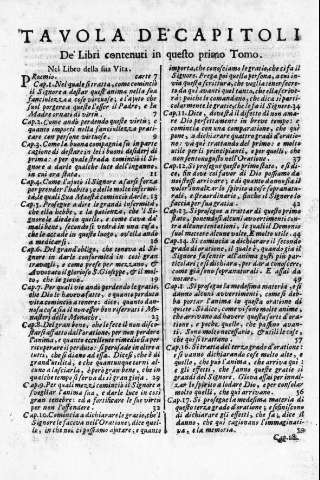 TAVOLA DE'CAPITOLI
De' Libri contenuti in questo primo Tomo.
Nel Libro della sua Vita.
PRoemio. carte 7
Cap.1. Nel quale si tratta, come cominciò
il Signore a destar quest'anima nella sua
fanciullezza a cose virtuose; e l'ajuto che
porge a questo l'esser il Padre, e la
Madre ornati di virtù.
Cap.2. Come andò perdendo queste virtù; e
quanto importi nella fanciullezza praticare
con persone virtuose.
Cap.3. Come la buona compagnia fu in parte
cagione di destare in lei buoni desiderj di
prima: e per quale strada cominciò il Signore
a darle qualche luce dell'inganno,
in cui era stata. 11
Cap.4. Come l'ajutò il Signore a farsi forza
per prender l'habito; e delle molte infermità,
le quali Sua Maestà cominciò darle. 13
Cap.5. Prosegue a dire le grandi infermità,
che ella hebbe, e la patienza, che il Signore
le diede in quelle, e come cava da'
mali beni, secondo si vedrà in una cosa,
che le accadè in questo luogo, ov'ella andò
a medicarsi.
Cap.6. Del grand'obligo, che teneva al Signore
in darle conformità in così gran
travagli, e come prese per mezzano, &
Avvocato il glorioso S. Giuseppe, & il molto,
che le giovò. 19
Cap.7. Per quali vie andò perdendo le gratie,
che Dio le haveva fatte, e quanto perduta
vita cominciò a tenere: dice, quanto dannosa
cosa sia il non esser ben riserrati i Monasterj
delle Monache. 22
Cap.8. Del gran bene, che le fece il non discostarsi
affatto dall'Oratione, per non perdere
l'anima, e quanto eccellente rimedio sia per
recuperare il perduto: si
tutti, che si diano ad essa. Dice, ch'è di
grand'utilità, e che quantunque tornassero
a lasciarla, è però gran bene, che in
qualche tempo si serva di sì gran gioia. 29
Cap.9. Per quali mezzi cominciò il Signore a
svegliar l'anima sua, e darle luce in così
gran tenebre: ed a fortificar le sue virtù
per non l'offendere. 32
Cap.10. Comincia a dichiarare le gratie, che'l
Signore le faceva nell'Oratione, dice quello,
in che noi ci possiamo ajutare; e quanto
importa, che conosciamo le gratie, che ci fa il
Signore. Prega poi quella persona, a cui invia
lo scritto, che da quivi avanti sia segreto
quello, che ella scriverà;
poiche le comandano, che dica sì particolarmente
le gratie, che le fa il Signore. 34
Cap.11. Dice, donde stà il difetto di non amare
Dio perfettamente in breve tempo: e
comincia con una comparatione, che quì
pone, a dichiarare quattro gradi d'oratione:
và quì trattando del primo: e molto
utile per li principianti, e per quelli, che
non sentono gusti nell'Oratione. 37
Cap.12. Si prosegue questo primo stato, e si dice,
fin dove col favor di Dio possiamo da
noi stessi arrivare; e di quanto danno sia il
voler innalzar lo spirito a cose soprannaturali,
e straordinarie, finche il Signore lo
faccia per sua gratia. 42
Cap.13. Si prosegue a trattar di questo primo
stato, e pone alcuni avvertimenti contra
alcune tentationi, le quali il Demonio
suol mettere alcune volte. È molto utile. 44
Cap.14. Si comincia a dichiarare il secondo grado
di oratione, il quale è, quando già il
Signore fa sentir all'anima gusti più particolari;
ciò si dichiara, per dar a conoscere,
come già sono sopranaturali. È assai da
notare. 49
Cap.15. Si prosegue la medesima materia, e si
danno alcuni avvertimenti, come si debba
portar l'anima in questa oratione di
quiete. Si dice, come vi sono molte anime,
che arrivano ad havere questa sorte d'oratione,
e poche quelle, che passino avanti.
Sono molto necessarie, & utili le cose,
che quì si trattano. 57
Cap.16. Si tratta del terzo grado d'oratione;
e si vanno dichiarando cose molto alte, e
quello, che può l'anima, che arriva quì e
gli effetti, che fanno queste gratie sì
grandi del Signore. Giova assai per innalzar
lo spirito a lodare Dio, e per consolar
molto quelli, che quì arrivano. 56
Cap.17. Si prosegue la medesima materia di
questo terzo grado d'oratione; e si finiscono
di dichiarare gli effetti, che fa: dice il
danno, che quì cagionano l'immaginativa,
e la memoria. 59
Cap.18.